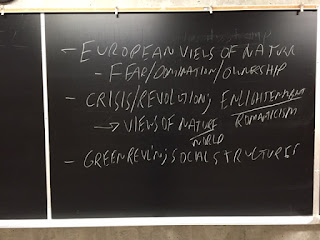 - EUROPEAN VIEWS OF NATURE
- FEAR/DOMINATION/OWNERSHIP
- CRISIS/REVOLUTION; ENLIGHTENMENT
ROMANTICISM
→ VIEWS OF NATURE
WORLD
- GREEN REV'N; SOCIAL STRUCTURES